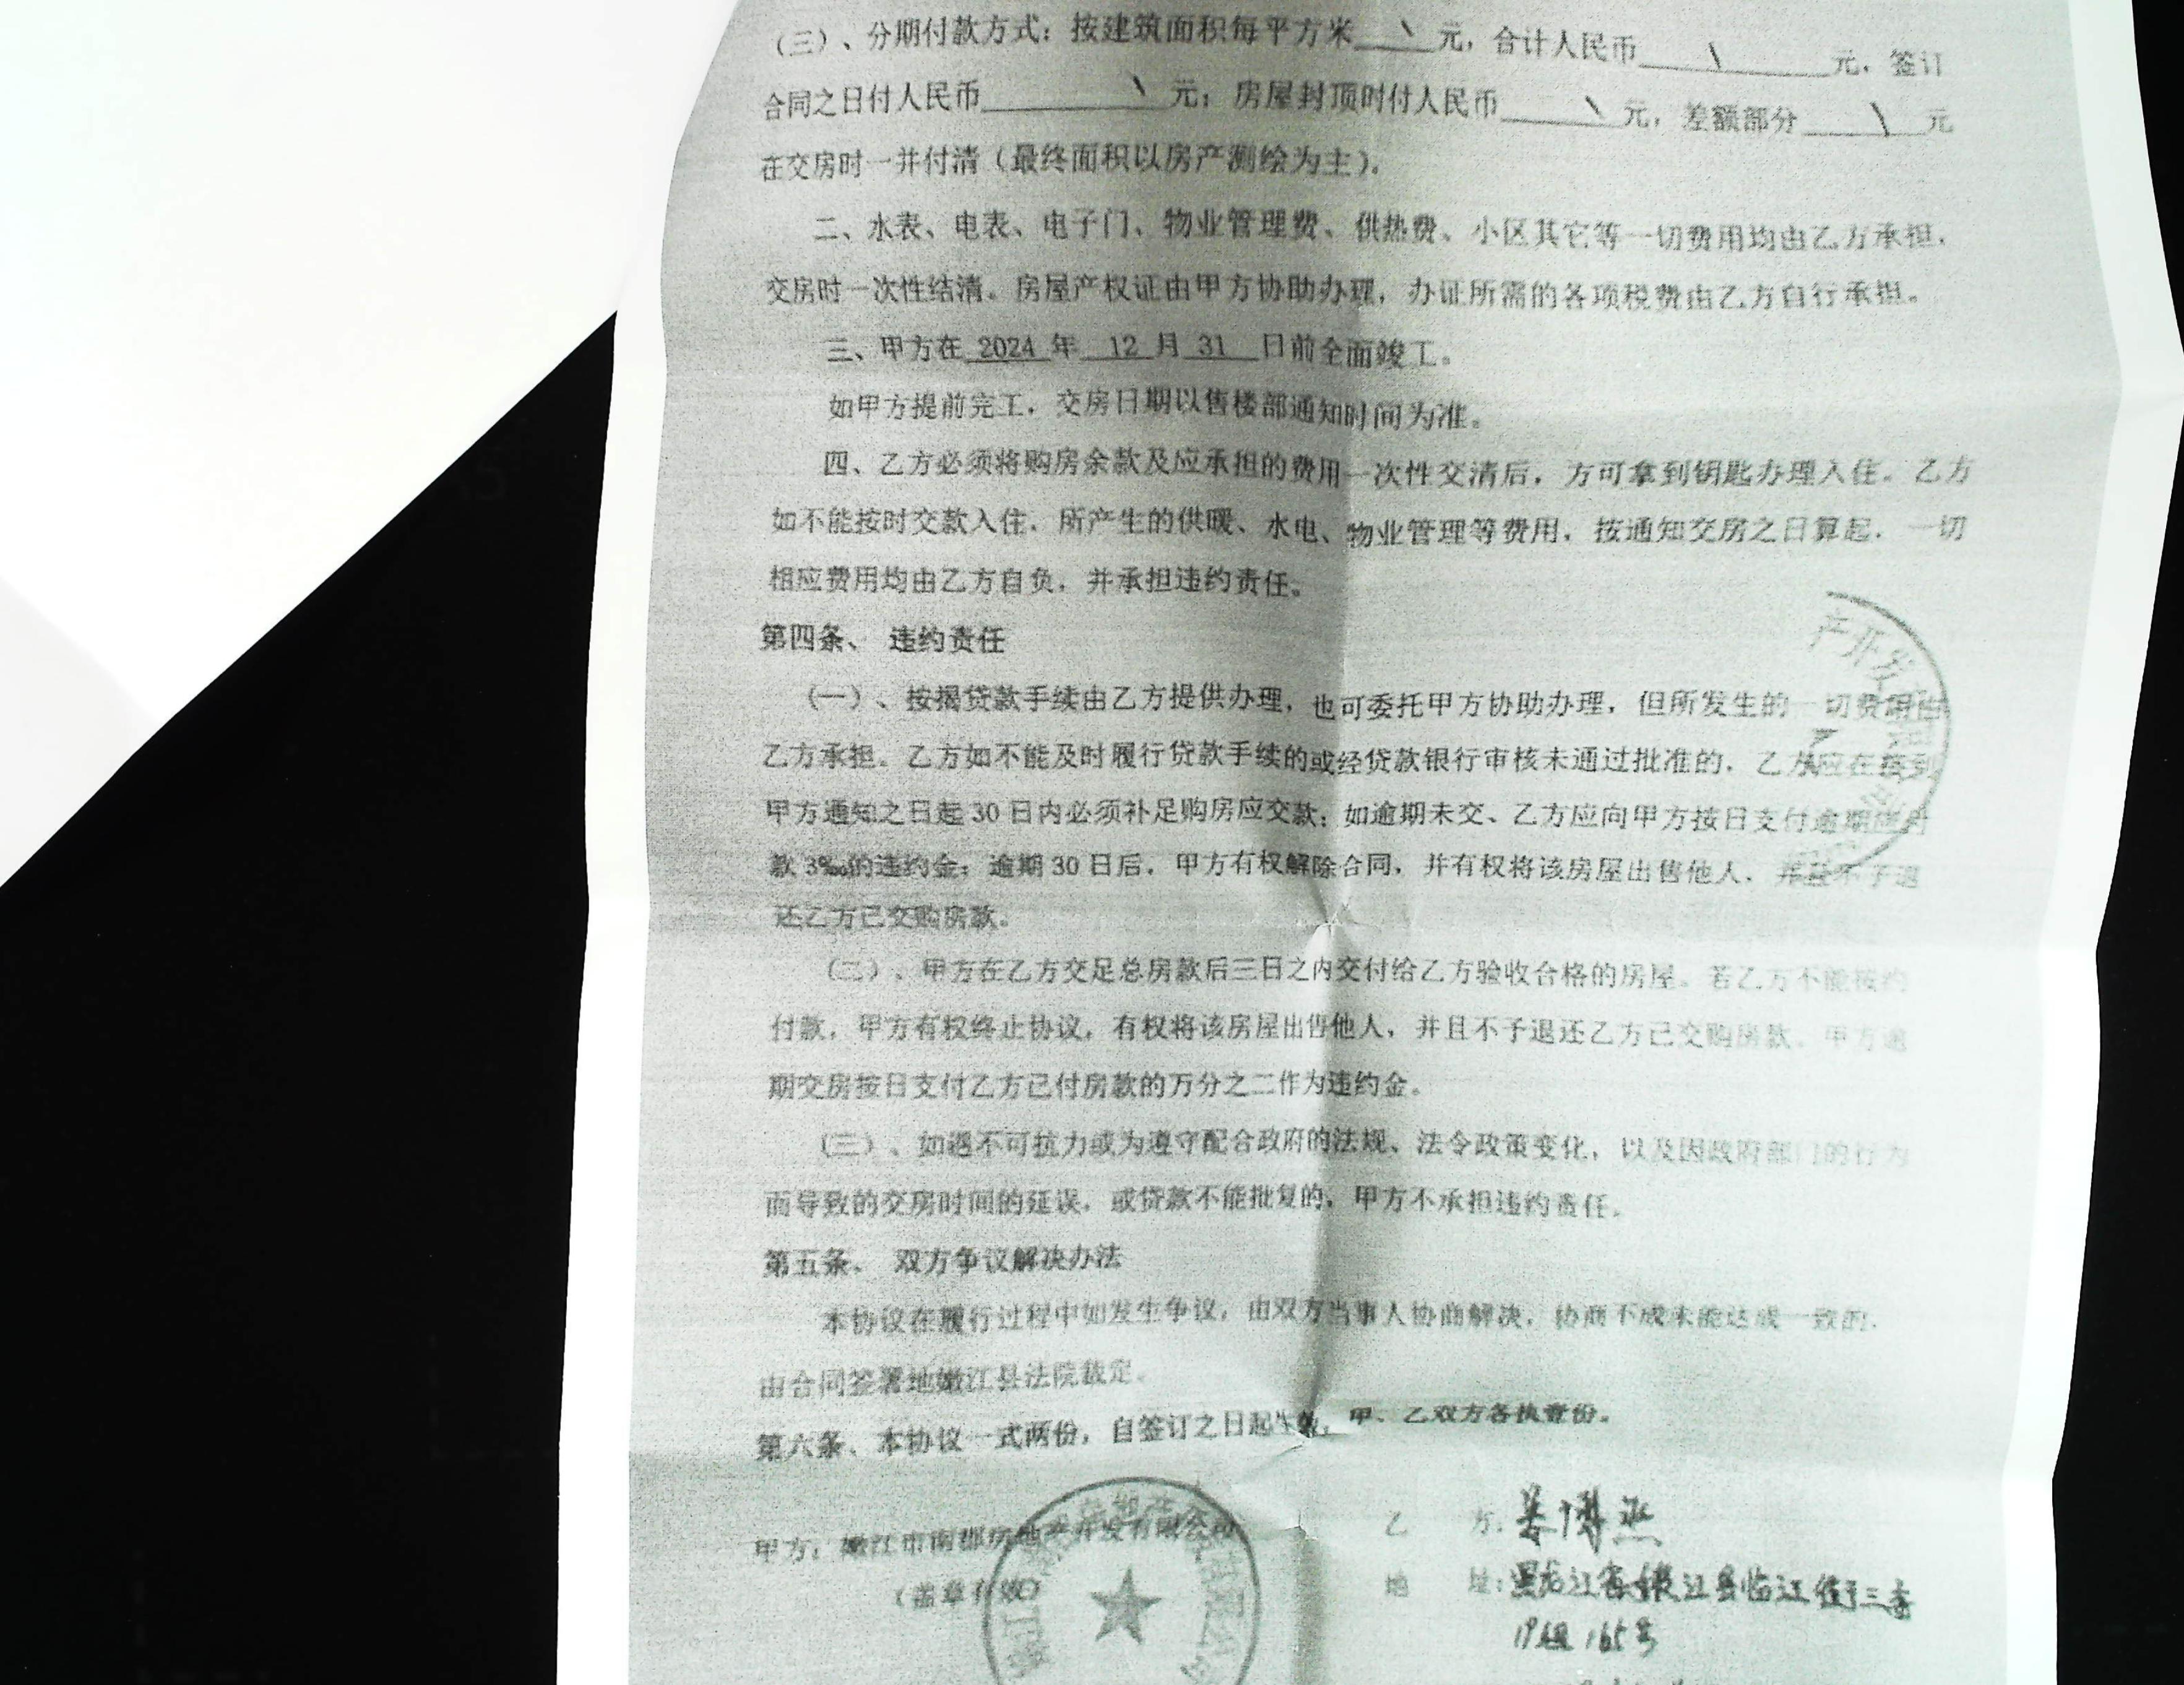 (三)、分期付款方式：按建筑面积每平方米 \ 元，合计人民币 \ 元，签订
合同之日付人民币 \ 元；房屋封顶时付人民币 \ 元，差额部分 \ 元
在交房时一并付清（最终面积以房产测绘为主）。
二、水表、电表、电子门、物业管理费、供热费、小区其它等一切费用均由乙方承担，
交房时一次性结清。房屋产权证由甲方协助办理，办证所需的各项税费由乙方自行承担。
三、甲方在 2024 年 12 月 31 日前全面竣工。
如甲方提前完工，交房日期以售楼部通知时间为准。
四、乙方必须将购房余款及应承担的费用一次性交清后，方可拿到钥匙办理入住。乙方
如不能按时交款入住，所产生的供暖、水电、物业管理等费用，按通知交房之日算起，一切
相应费用均由乙方自负，并承担违约责任。
第四条、 违约责任
(一)、按揭贷款手续由乙方提供办理，也可委托甲方协助办理，但所发生的一切费用由
乙方承担。乙方如不能及时履行贷款手续的或经贷款银行审核未通过批准的，乙方应在接到
甲方通知之日起 30 日内必须补足购房应交款；如逾期未交、乙方应向甲方按日支付逾期应付
款 3‰的违约金；逾期 30 日后，甲方有权解除合同，并有权将该房屋出售他人，并且不予退
还乙方已交购房款。
(二)、甲方在乙方交足总房款后三日之内交付给乙方验收合格的房屋。若乙方不能按约
付款，甲方有权终止协议，有权将该房屋出售他人，并且不予退还乙方已交购房款。甲方逾
期交房按日支付乙方已付房款的万分之二作为违约金。
(三)、如遇不可抗力或为遵守配合政府的法规、法令政策变化，以及因政府部门的行为
而导致的交房时间的延误，或贷款不能批复的，甲方不承担违约责任。
第五条、 双方争议解决办法
本协议在履行过程中如发生争议，由双方当事人协商解决，协商不成未能达成一致的，
由合同签署地嫩江县法院裁定。
第六条、本协议一式两份，自签订之日起生效，甲、乙双方各执壹份。
甲方：嫩江市南郡房地产开发有限公司
(盖章有效)
乙 方：姜博
地 址：黑龙江省嫩江县临江街三委
19组165号
产开发